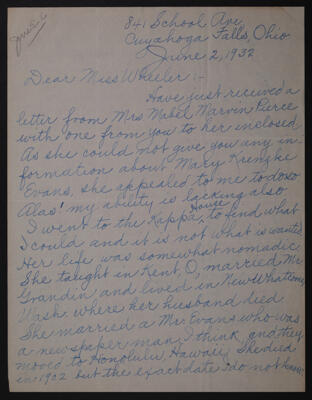 841 School Ave
Cuyahoga Falls, Ohio
June 2, 1932
Dear Miss Wheeler :-
Have just received a
letter from Mrs Mabel Marvin Pierce
with one from you to her inclosed
As she could not give you any in-
formation about Mary Krengke
Evans, she appealed to me to do so
Alas! my ability is lacking also
I went to the Kappa House, to find what
I could and it is not what is wanted
Her life was somewhat nomadic
She taught in Kent, O, married Mr
Grandin and lived in New Whatcom
Wash. where her husband died
She married a Mr. Evans who was
a newspaper man, I think, and they
moved to Honolulu, Hawaii, She died
in 1902 but the exact date I do not know.